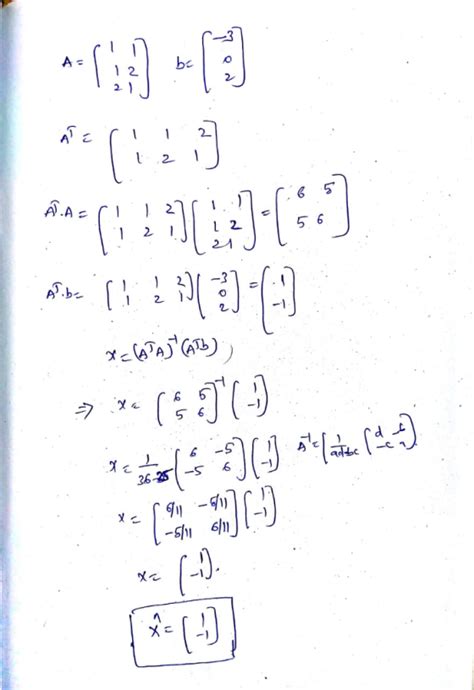 A = [1 1; 1 2; 2 1] b = [-3; 0; 2]
Aᵀ = [1 1 2; 1 2 1]
Aᵀ.A = [1 1 2; 1 2 1] [1 1; 1 2; 2 1] = [6 5; 5 6]
Aᵀ.b = [1 1 2; 1 2 1] [-3; 0; 2] = [1; -1]
x = (AᵀA)⁻¹ (Aᵀb),
⇒ x = [6 5; 5 6]⁻¹ [1; -1]
x = 1/36-25 [6 -5; -5 6] [1; -1] A⁻¹ = [1/ad-bc [d -b; -c a]
x = [6/11 -5/11; -5/11 6/11] [1; -1]
x = [1; -1].
x̂ = [1; -1]